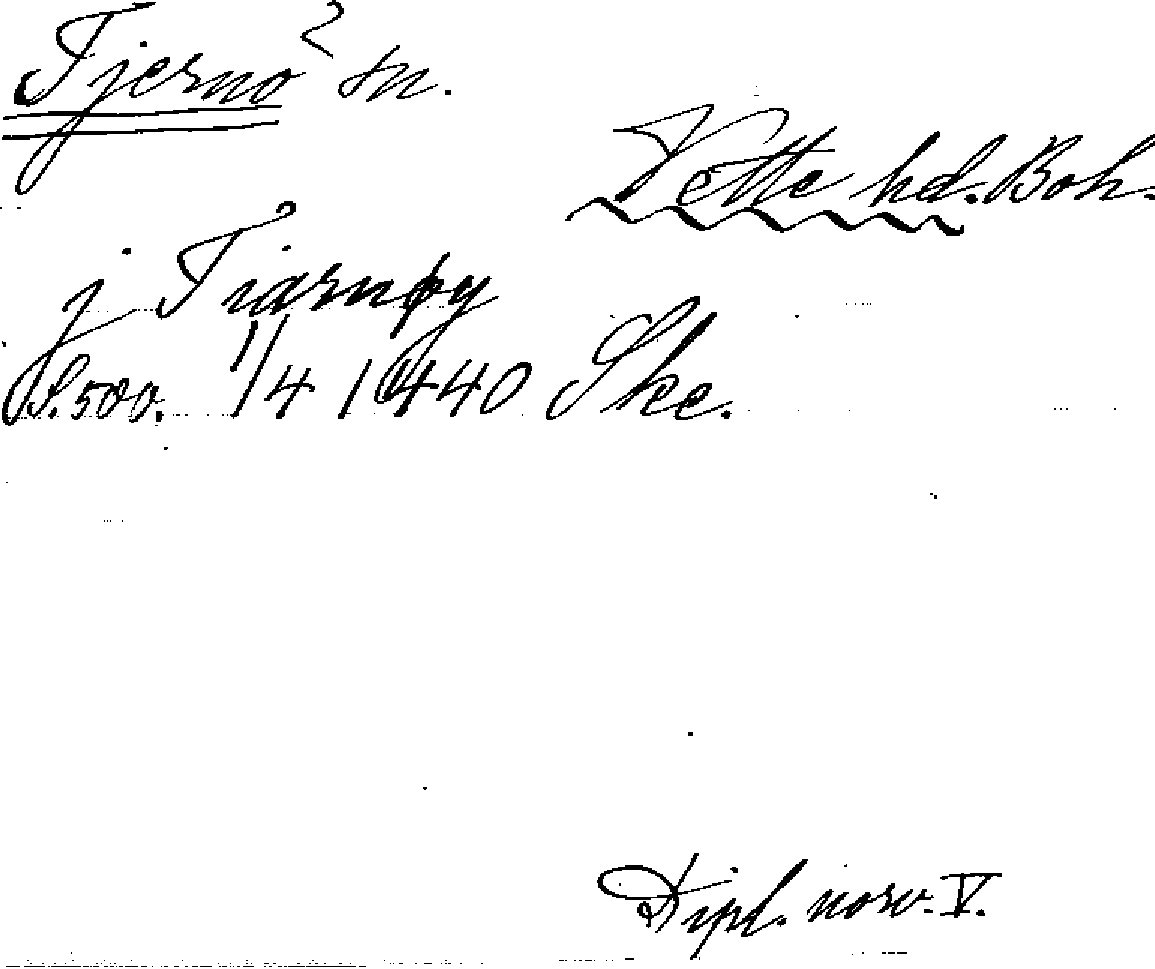 Tjernö sn.
Vette hd. Boh.
j Tiarnøy
S. 500. 1/4 1440 Ske.
Dipl. norv. V.